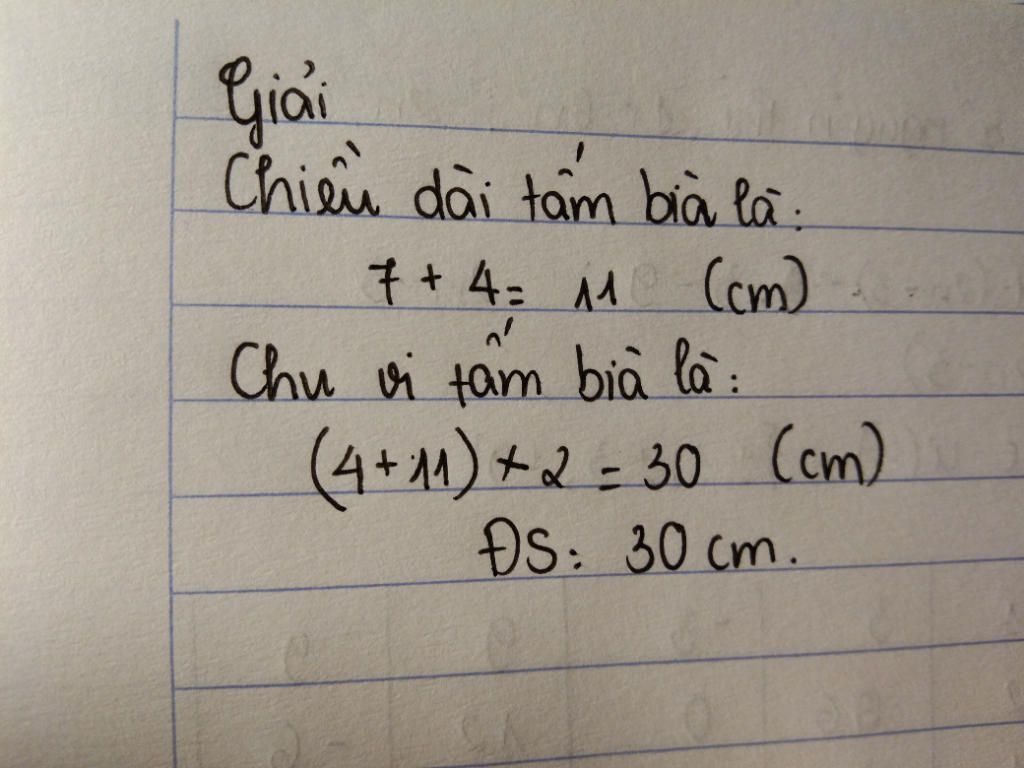 Giải
Chiều dài tấm bià là:
7 + 4 = 11 (cm)
Chu vi tấm bià là:
(4 + 11) × 2 = 30 (cm)
ĐS: 30 cm.